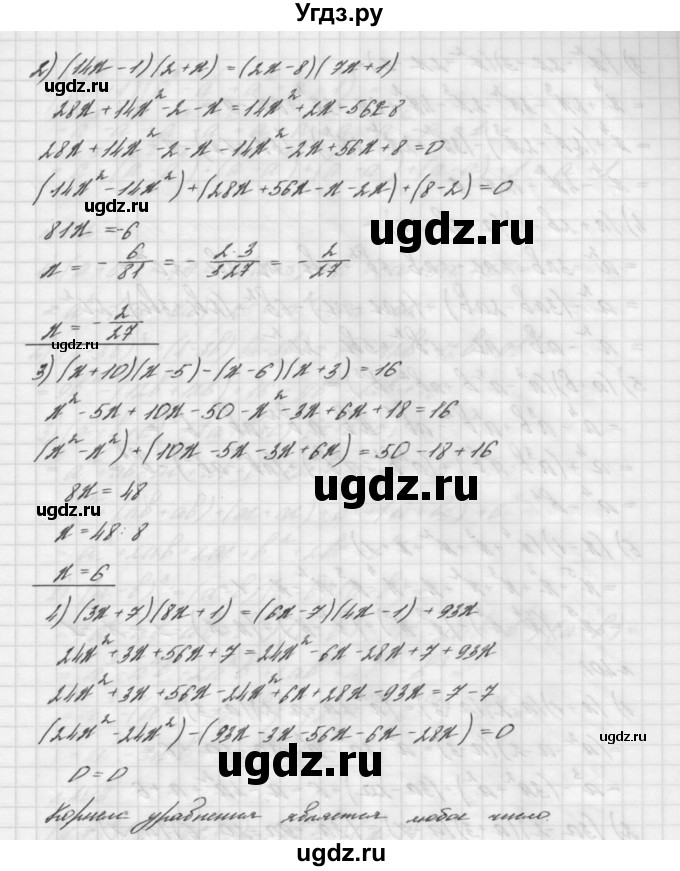 Угдз.ру
2) (14x - 1)(2 + x) = (2x - 8)(7x + 1)
ugdz.ru
28x + 14x² - 2 - x = 14x² + 2x - 56x - 8
28x + 14x² - 2 - x - 14x² - 2x + 56x + 8 = 0
(14x² - 14x²) + (28x + 56x - x - 2x) + (8 - 2) = 0
ugdz.ru
81x = -6
ugdz.ru
x = - 6/81 = - 2·3/3·27 = - 2/27
x = - 2/27
ugdz.ru
3) (x + 10)(x - 5) - (x - 6)(x + 3) = 16
x² - 5x + 10x - 50 - x² - 3x + 6x + 18 = 16
(x² - x²) + (10x - 5x - 3x + 6x) = 50 - 18 + 16
8x = 48
ugdz.ru
ugdz.ru
x = 48 : 8
x = 6
4) (3x + 7)(8x + 1) = (6x - 7)(4x - 1) + 93x
24x² + 3x + 56x + 7 = 24x² - 6x - 28x + 7 + 93x
24x² + 3x + 56x - 24x² + 6x + 28x - 93x = 7 - 7
(24x² - 24x²) - (93x - 3x - 56x - 6x - 28x) = 0
ugdz.ru
0 = 0
ugdz.ru
Корнем уравнения является любое число.
ugdz.ru